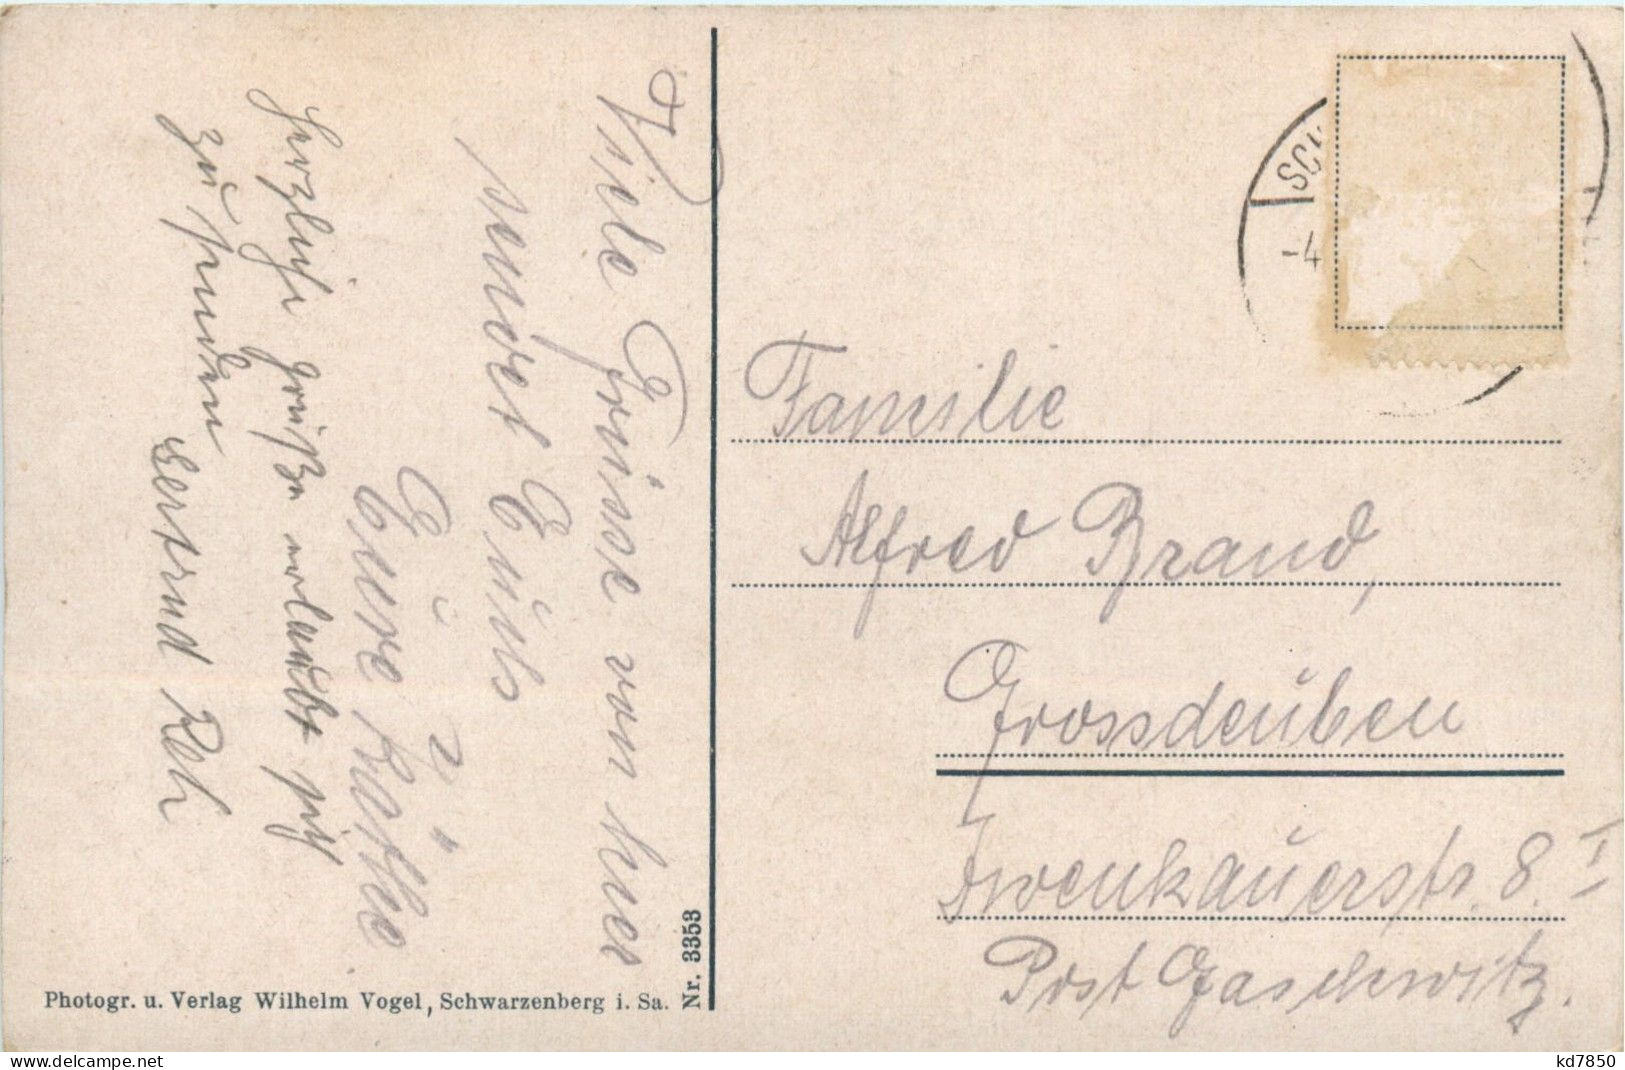 Viele Grüsse von hier
sendet Euch
Eure Käthe
Herzliche Grüße erlaubt sich
zu senden
Gertrud Reh
SCH
-4.
Familie
Alfred Brand,
Grossdeuben
Zwenkauerstr. 8. I
Post Gaschwitz.
Nr. 3353
Photogr. u. Verlag Wilhelm Vogel, Schwarzenberg i. Sa.
www.delcampe.net
kd7850